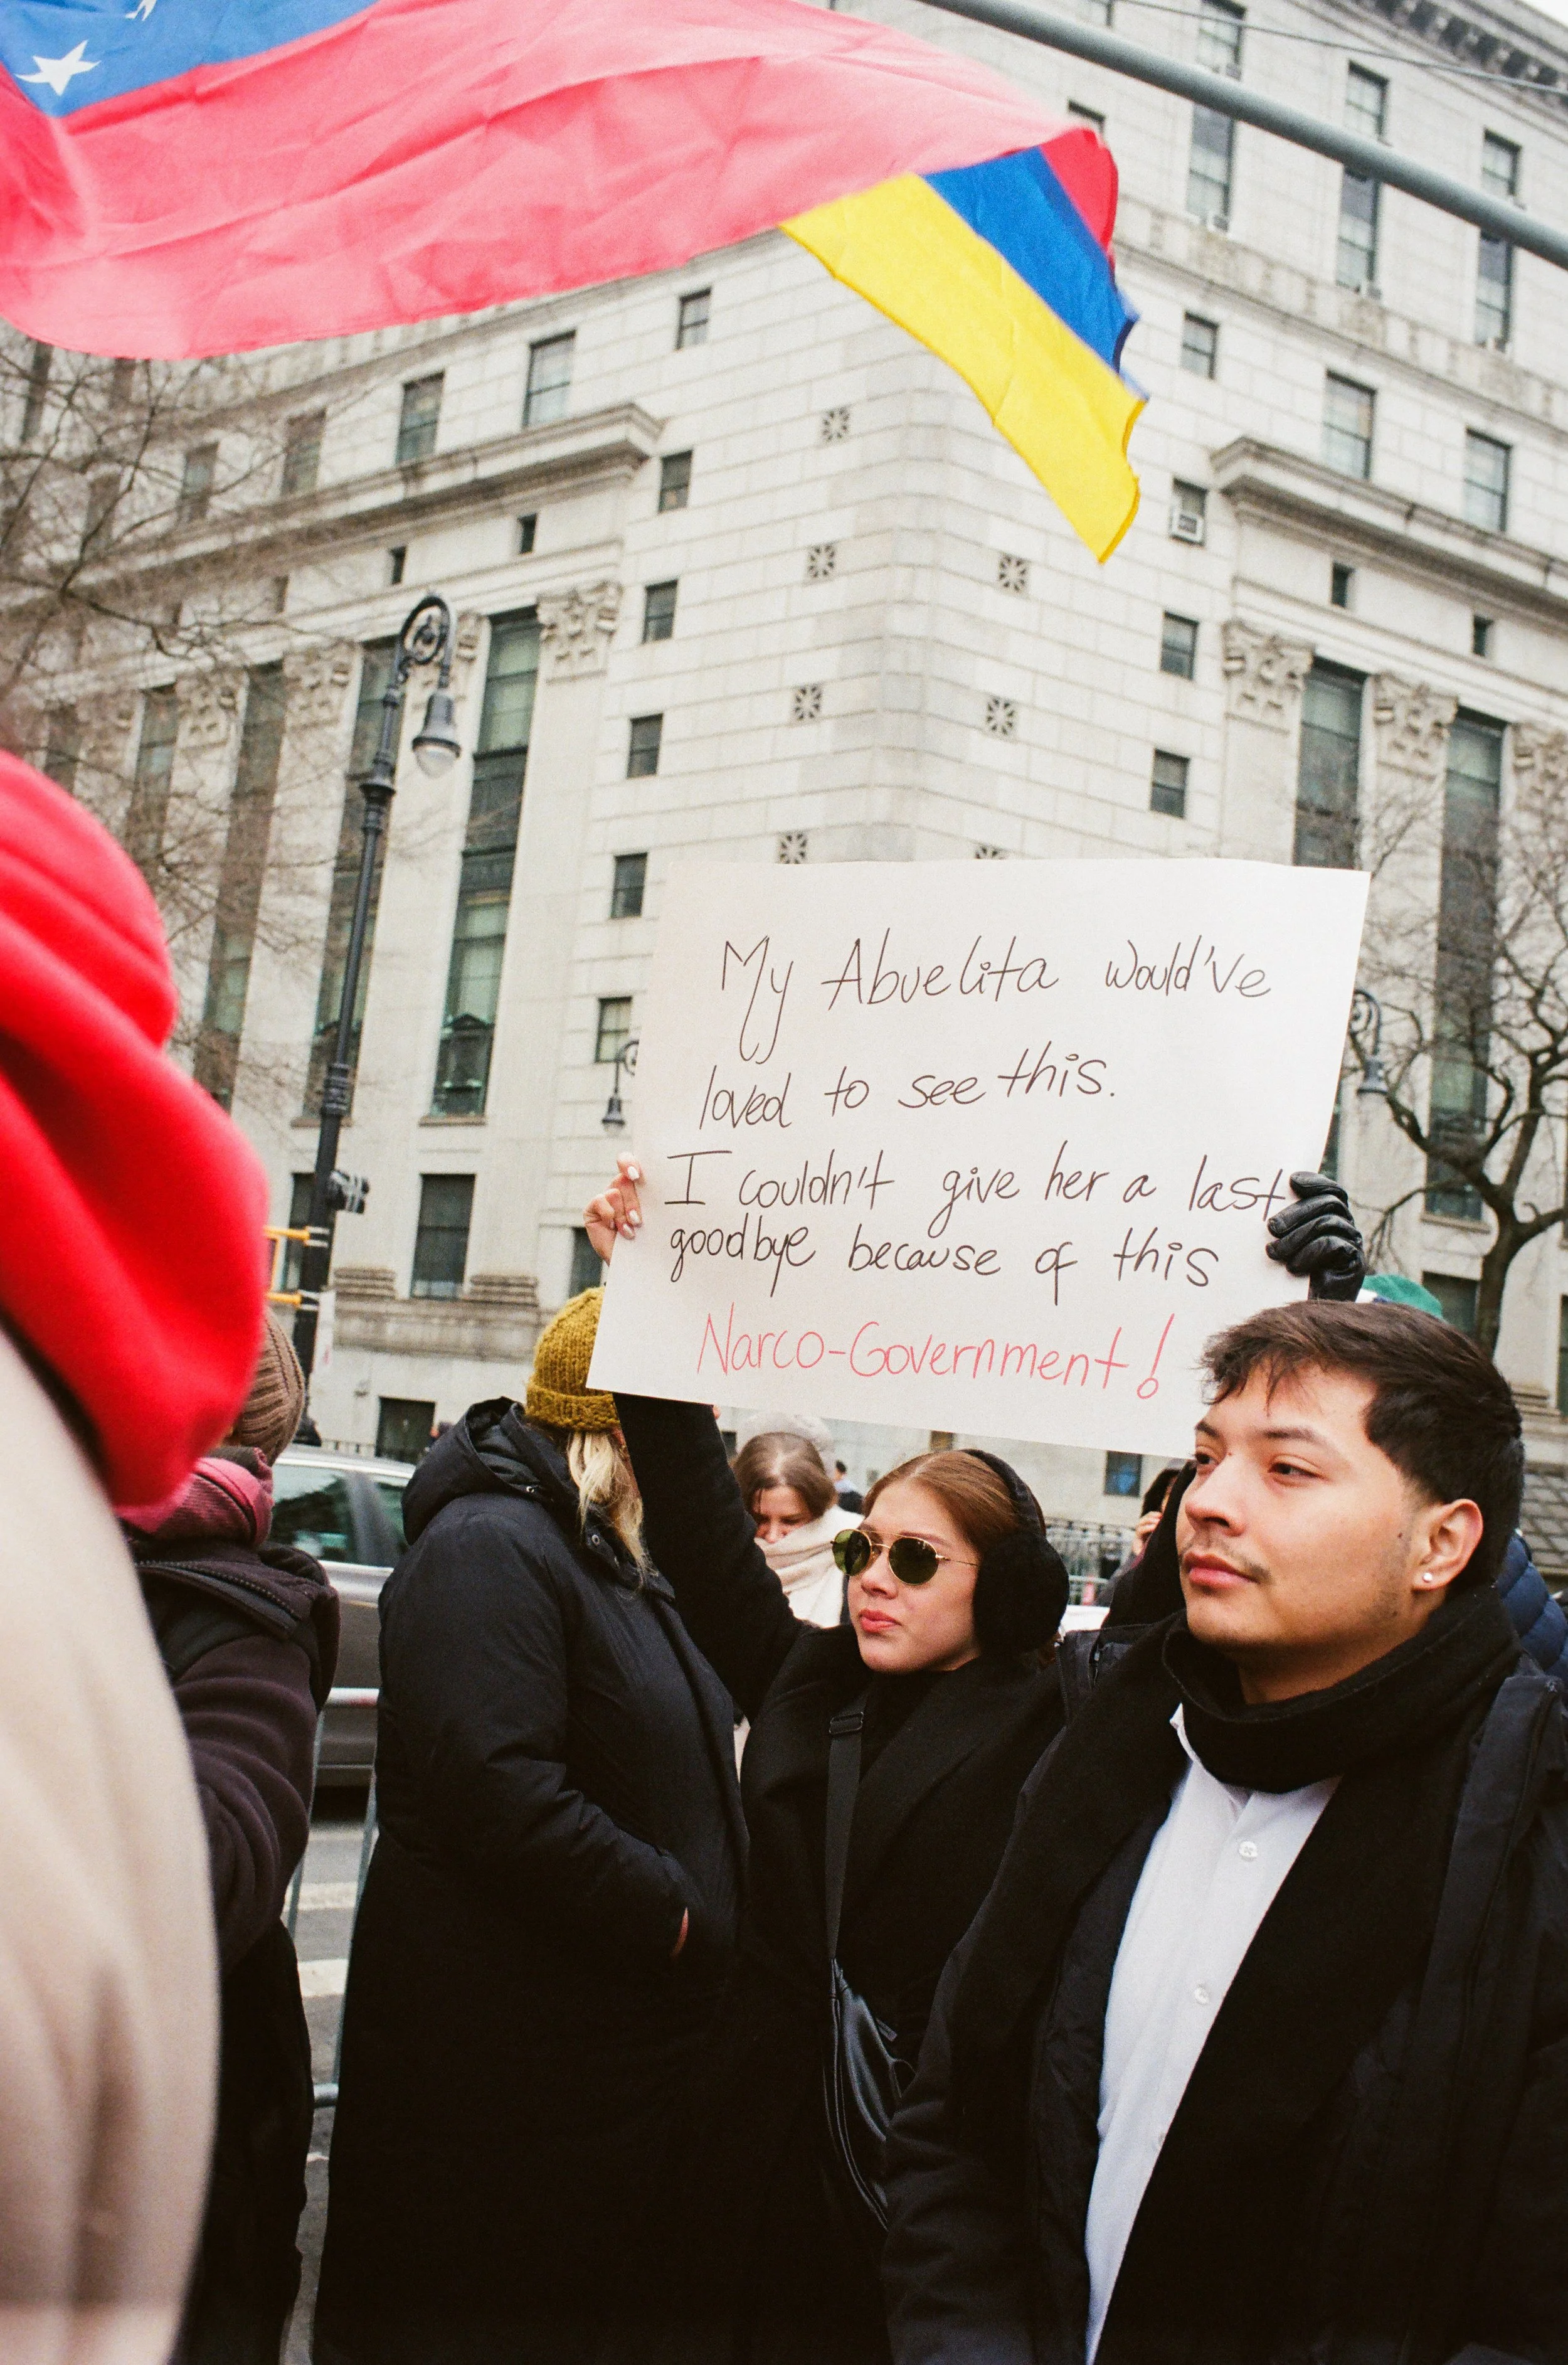 My Abuelita would've
loved to see this.
I couldn't give her a last
goodbye because of this
Narco-Government!